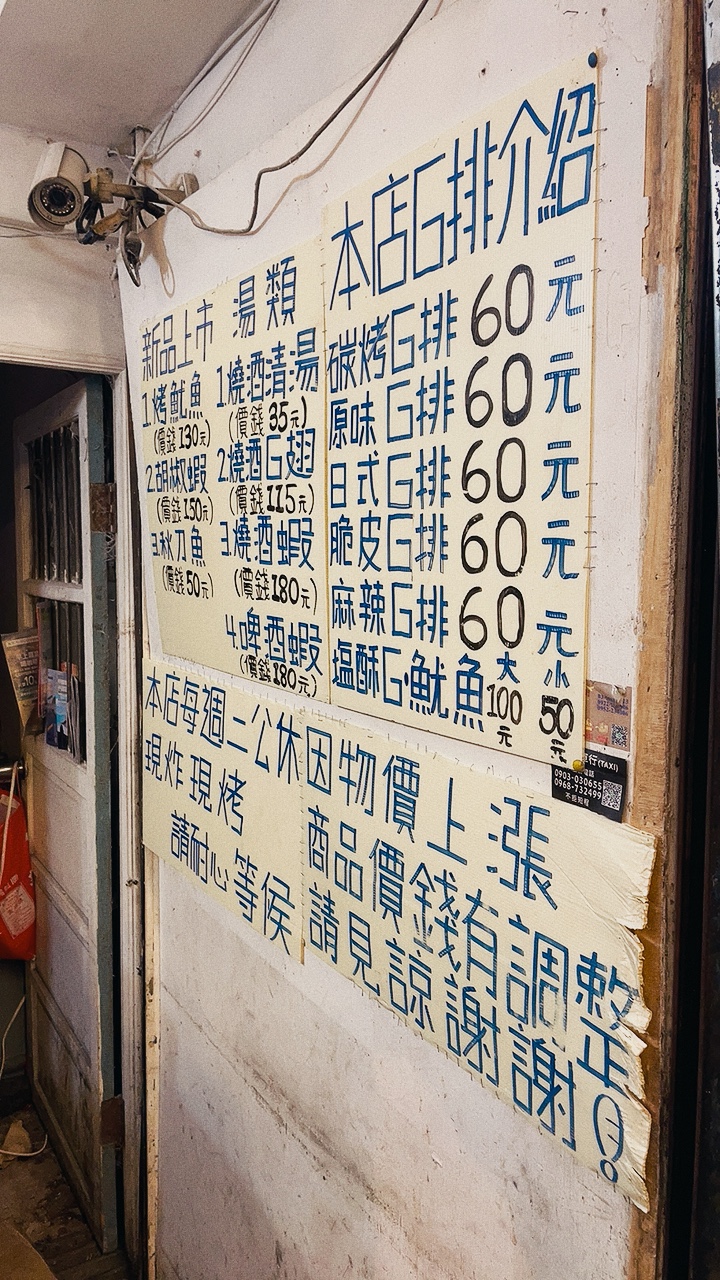 本店G排介紹
碳烤G排 60元
原味G排 60元
日式G排 60元
脆皮G排 60元
麻辣G排 60元
塩酥G·魷魚 大100元 小50元
新品上市
1.烤魷魚
(價錢130元)
2.胡椒蝦
(價錢150元)
3.秋刀魚
(價錢50元)
湯類
1.燒酒清湯
(價錢35元)
2.燒酒G翅
(價錢115元)
3.燒酒蝦
(價錢180元)
4.啤酒蝦
(價錢180元)
本店每週二公休
現炸現烤
請耐心等侯
因物價上漲
商品價錢有調整
請見諒謝謝!
行(TAXI)
0903-030655
0968-732499